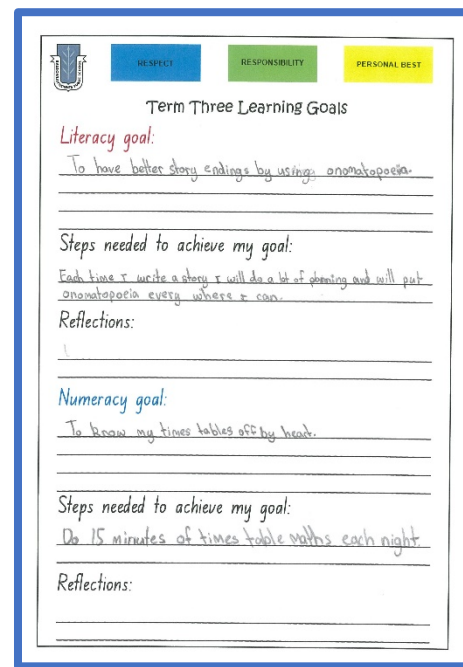 RESPECT
RESPONSIBILITY
PERSONAL BEST
Term Three Learning Goals
Literacy goal:
To have better story endings by using onomatopoeia.
Steps needed to achieve my goal:
Each time I write a story I will do a lot of planning and will put
onomatopoeia every where I can.
Reflections:
Numeracy goal:
To know my times tables off by heart.
Steps needed to achieve my goal:
Do 15 minutes of times table maths each night.
Reflections: